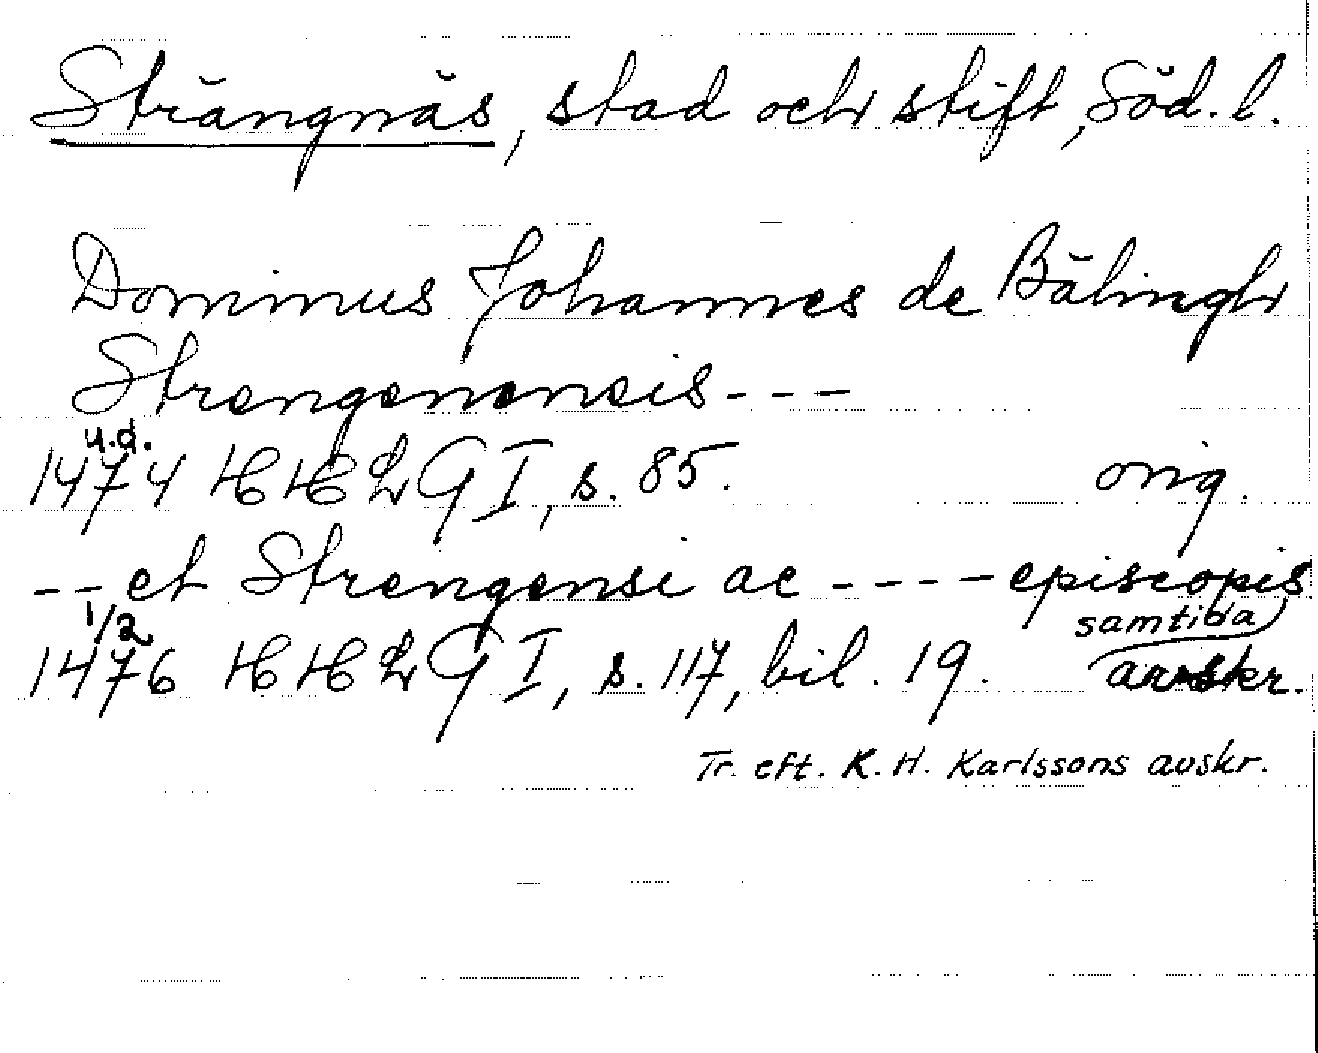 Strängnäs, stad och stift, Söd. l.
Dominus Johannes de Bälingh
Strengenensis ---
u.d.
1474 HHLG I, s. 85. orig.
-- et Strengensi ac ---- episcopis
1/2 samtida
1476 HHLG I, s. 117, bil. 19. avskr.
Tr. eft. K. H. Karlssons avskr.